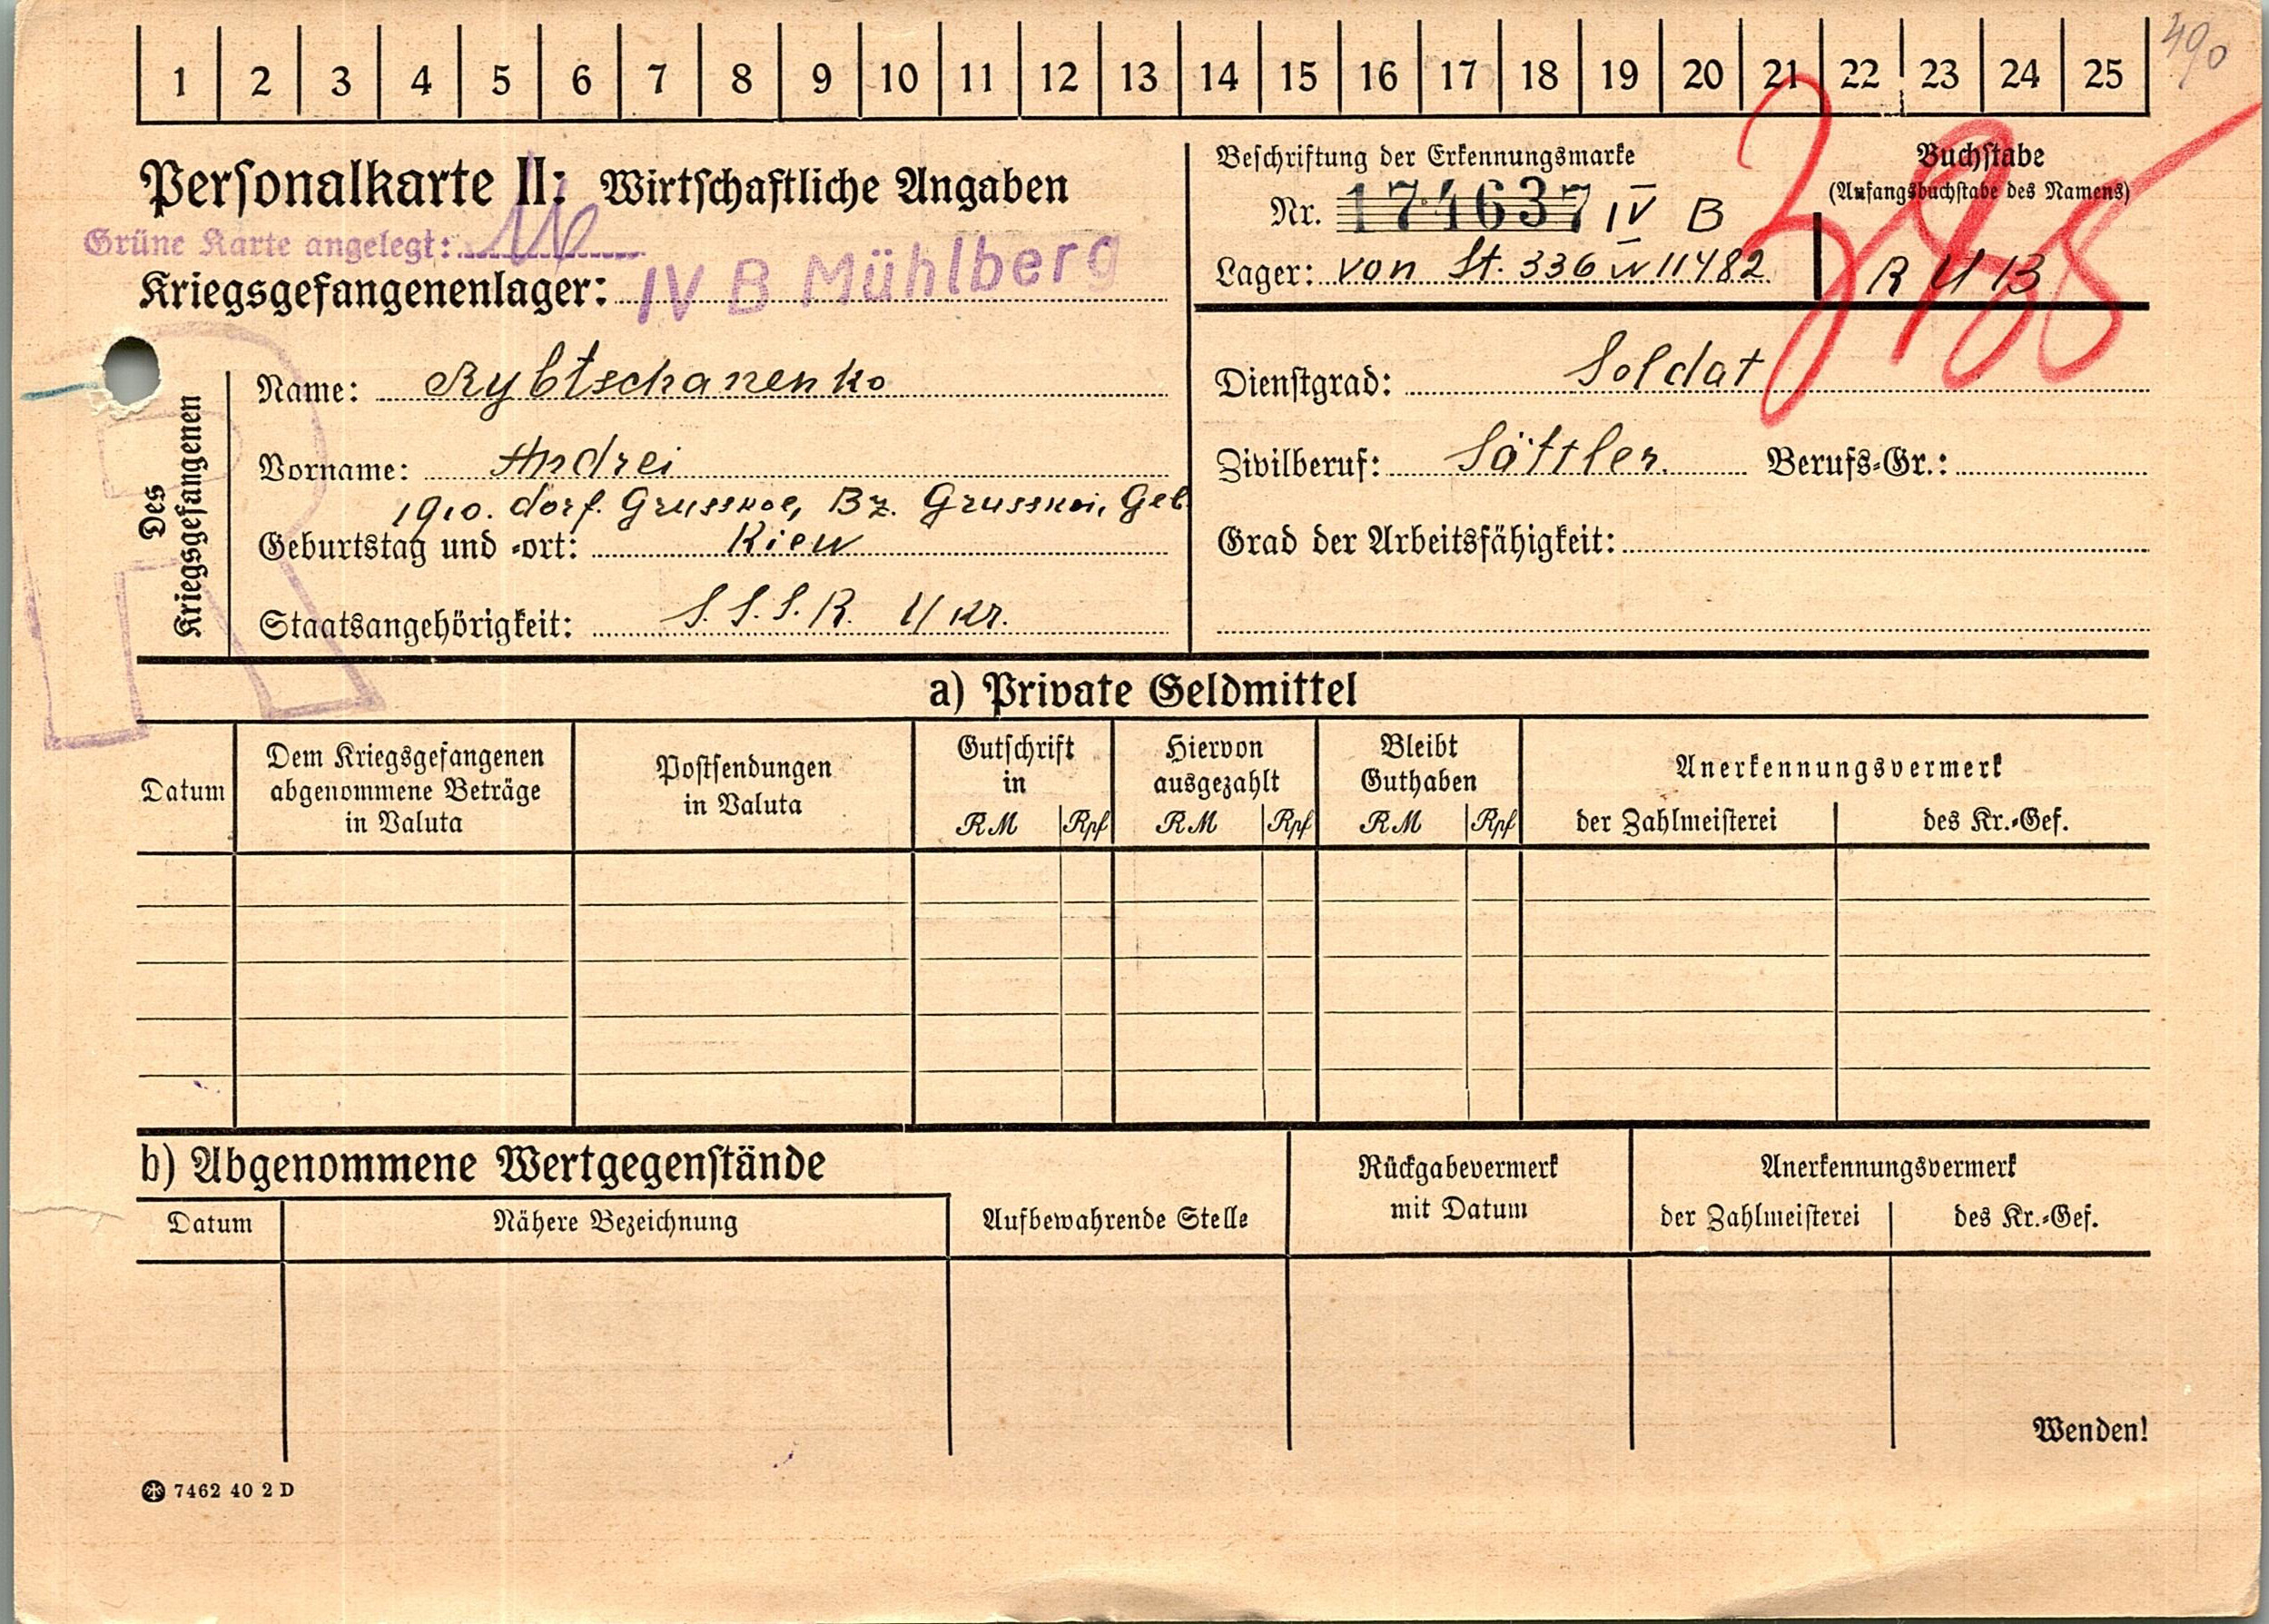 1 2 3 4 5 6 7 8 9 10 11 12 13 14 15 16 17 18 19 20 21 22 23 24 25
Personalkarte II: Wirtschaftliche Angaben
Grüne Karte angelegt:
Kriegsgefangenenlager: IV B Mühlberg
Beschriftung der Erkennungsmarke
Nr. 174637 IV B
Lager: von St. 336 N 11482
Buchstabe
(Anfangsbuchstabe des Namens)
R U B
Des Kriegsgefangenen
Name: Rybtschanenko
Vorname: Andrei
1910. dorf. Grusskoe, Bz. Grusskoi, Geb.
Geburtstag und -ort: Kiew
Staatsangehörigkeit: S.S.S.R. Ukr.
Dienstgrad: Soldat
Zivilberuf: Sättler. Berufs-Gr.:
Grad der Arbeitsfähigkeit:
R
a) Private Geldmittel
Datum
Dem Kriegsgefangenen
abgenommene Beträge
in Valuta
Postsendungen
in Valuta
Gutschrift
in
RM Rpf
Hiervon
ausgezahlt
RM Rpf
Bleibt
Guthaben
RM Rpf
Anerkennungsvermerk
der Zahlmeisterei des Kr.-Gef.
b) Abgenommene Wertgegenstände
Datum Nähere Bezeichnung
Aufbewahrende Stelle
Rückgabevermerk
mit Datum
Anerkennungsvermerk
der Zahlmeisterei des Kr.-Gef.
Wenden!
7462 40 2 D